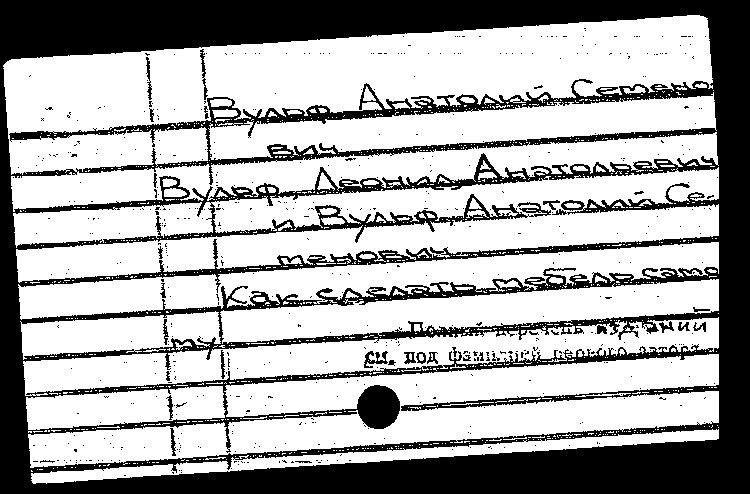 Вульф, Анатолий Семено
вич
Вульф, Леонид Анатольевич
и Вульф, Анатолий Се-
менович
Как сделать мебель само
му
Полный перечень изданий
см. под фамилией первого автора